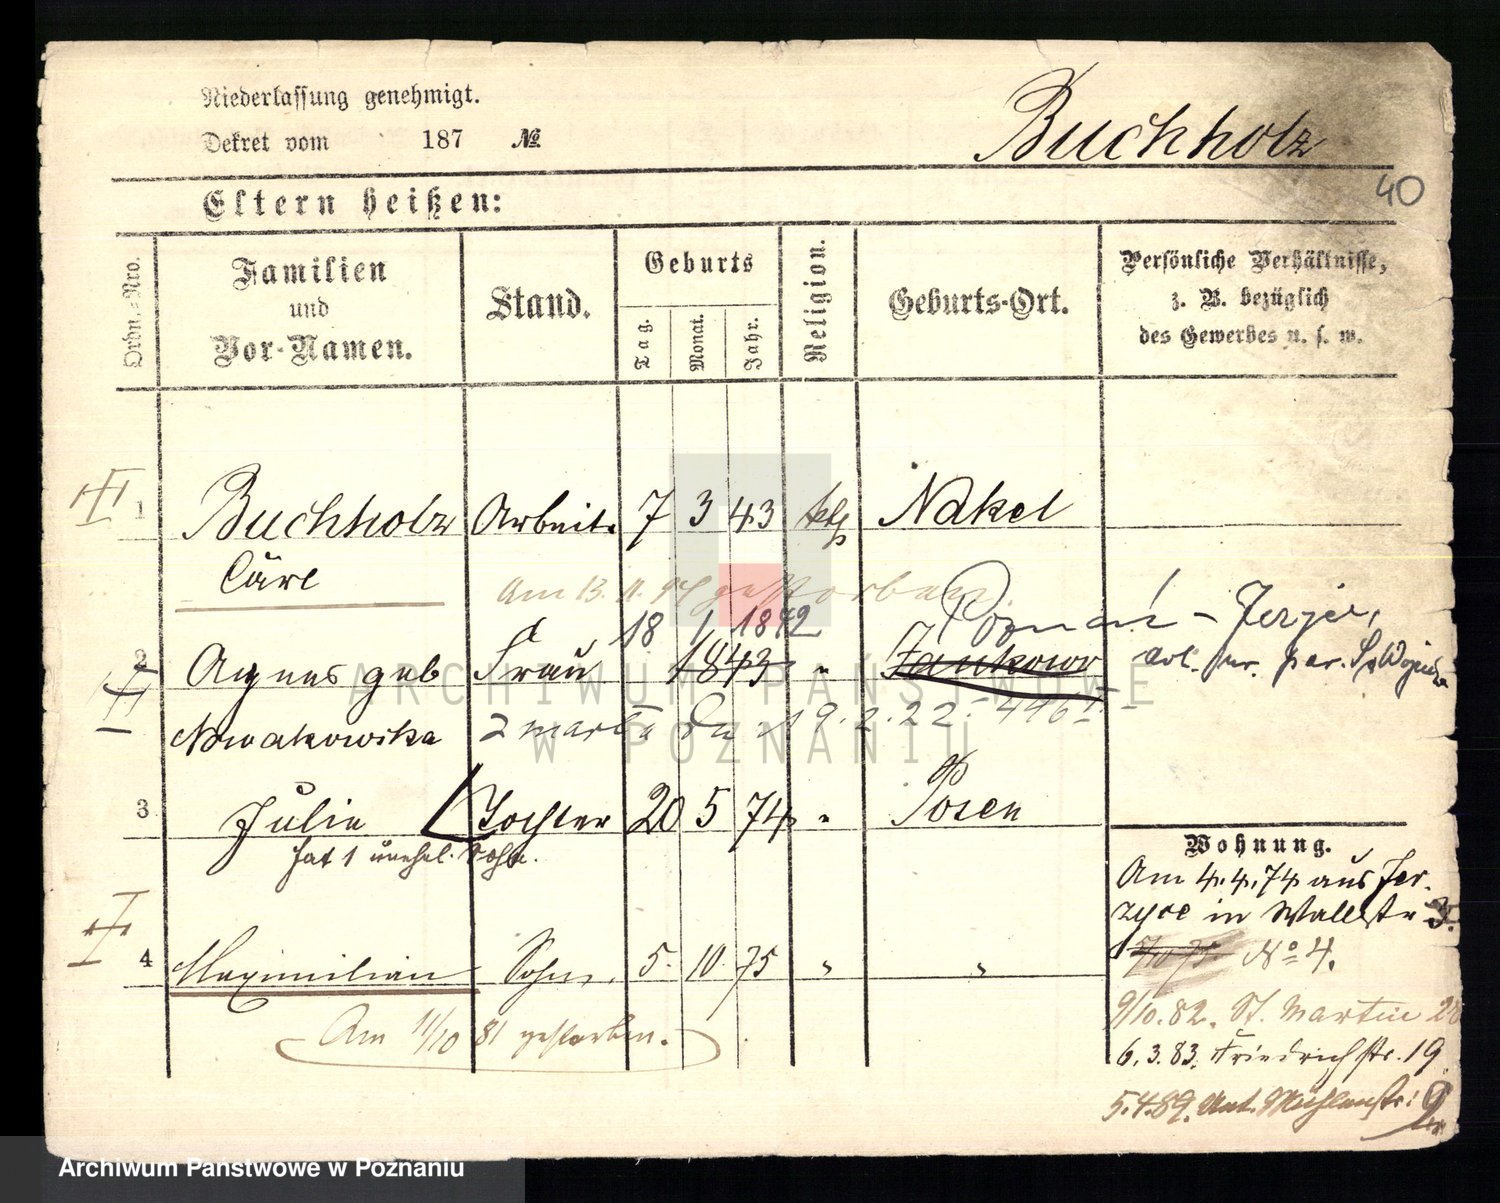 Niederlassung genehmigt.
Dekret vom 187 №
Buchholz
40
Eltern heißen:
Ordn.-Nro.
Familien
und
Vor-Namen.
Stand.
Geburts
Tag.
Monat.
Jahr.
Religion.
Geburts-Ort.
Persönliche Verhältnisse,
z. B. bezüglich
des Gewerbes u. s. w.
1 Buchholz Arbeit. 7 3 43 kth Nakel
Carl
Am 13. 11. 94 gestorben.
18 1 1842 Poznań - Jerzyce,
2 Agnes geb Frau 1843 " Jankowo
Nowakowska
zmarła dn 19.2.22.
3 Julie Tochter 20 5 74 " Posen
hat 1 unehel. Sohn.
4 Maximilian Sohn. 5. 10. 75 " "
Am 11/10 81 gestorben.
Wohnung.
Am 4.4.74 aus Jer-
zyce in Wallstr 3.
No 4.
9/10.82. St. Martin 28
6.3.83. Friedrichstr. 19
5.4.89. Unt. Mühlenstr: 9
ARCHIWUM PAŃSTWOWE
W POZNANIU
Archiwum Państwowe w Poznaniu